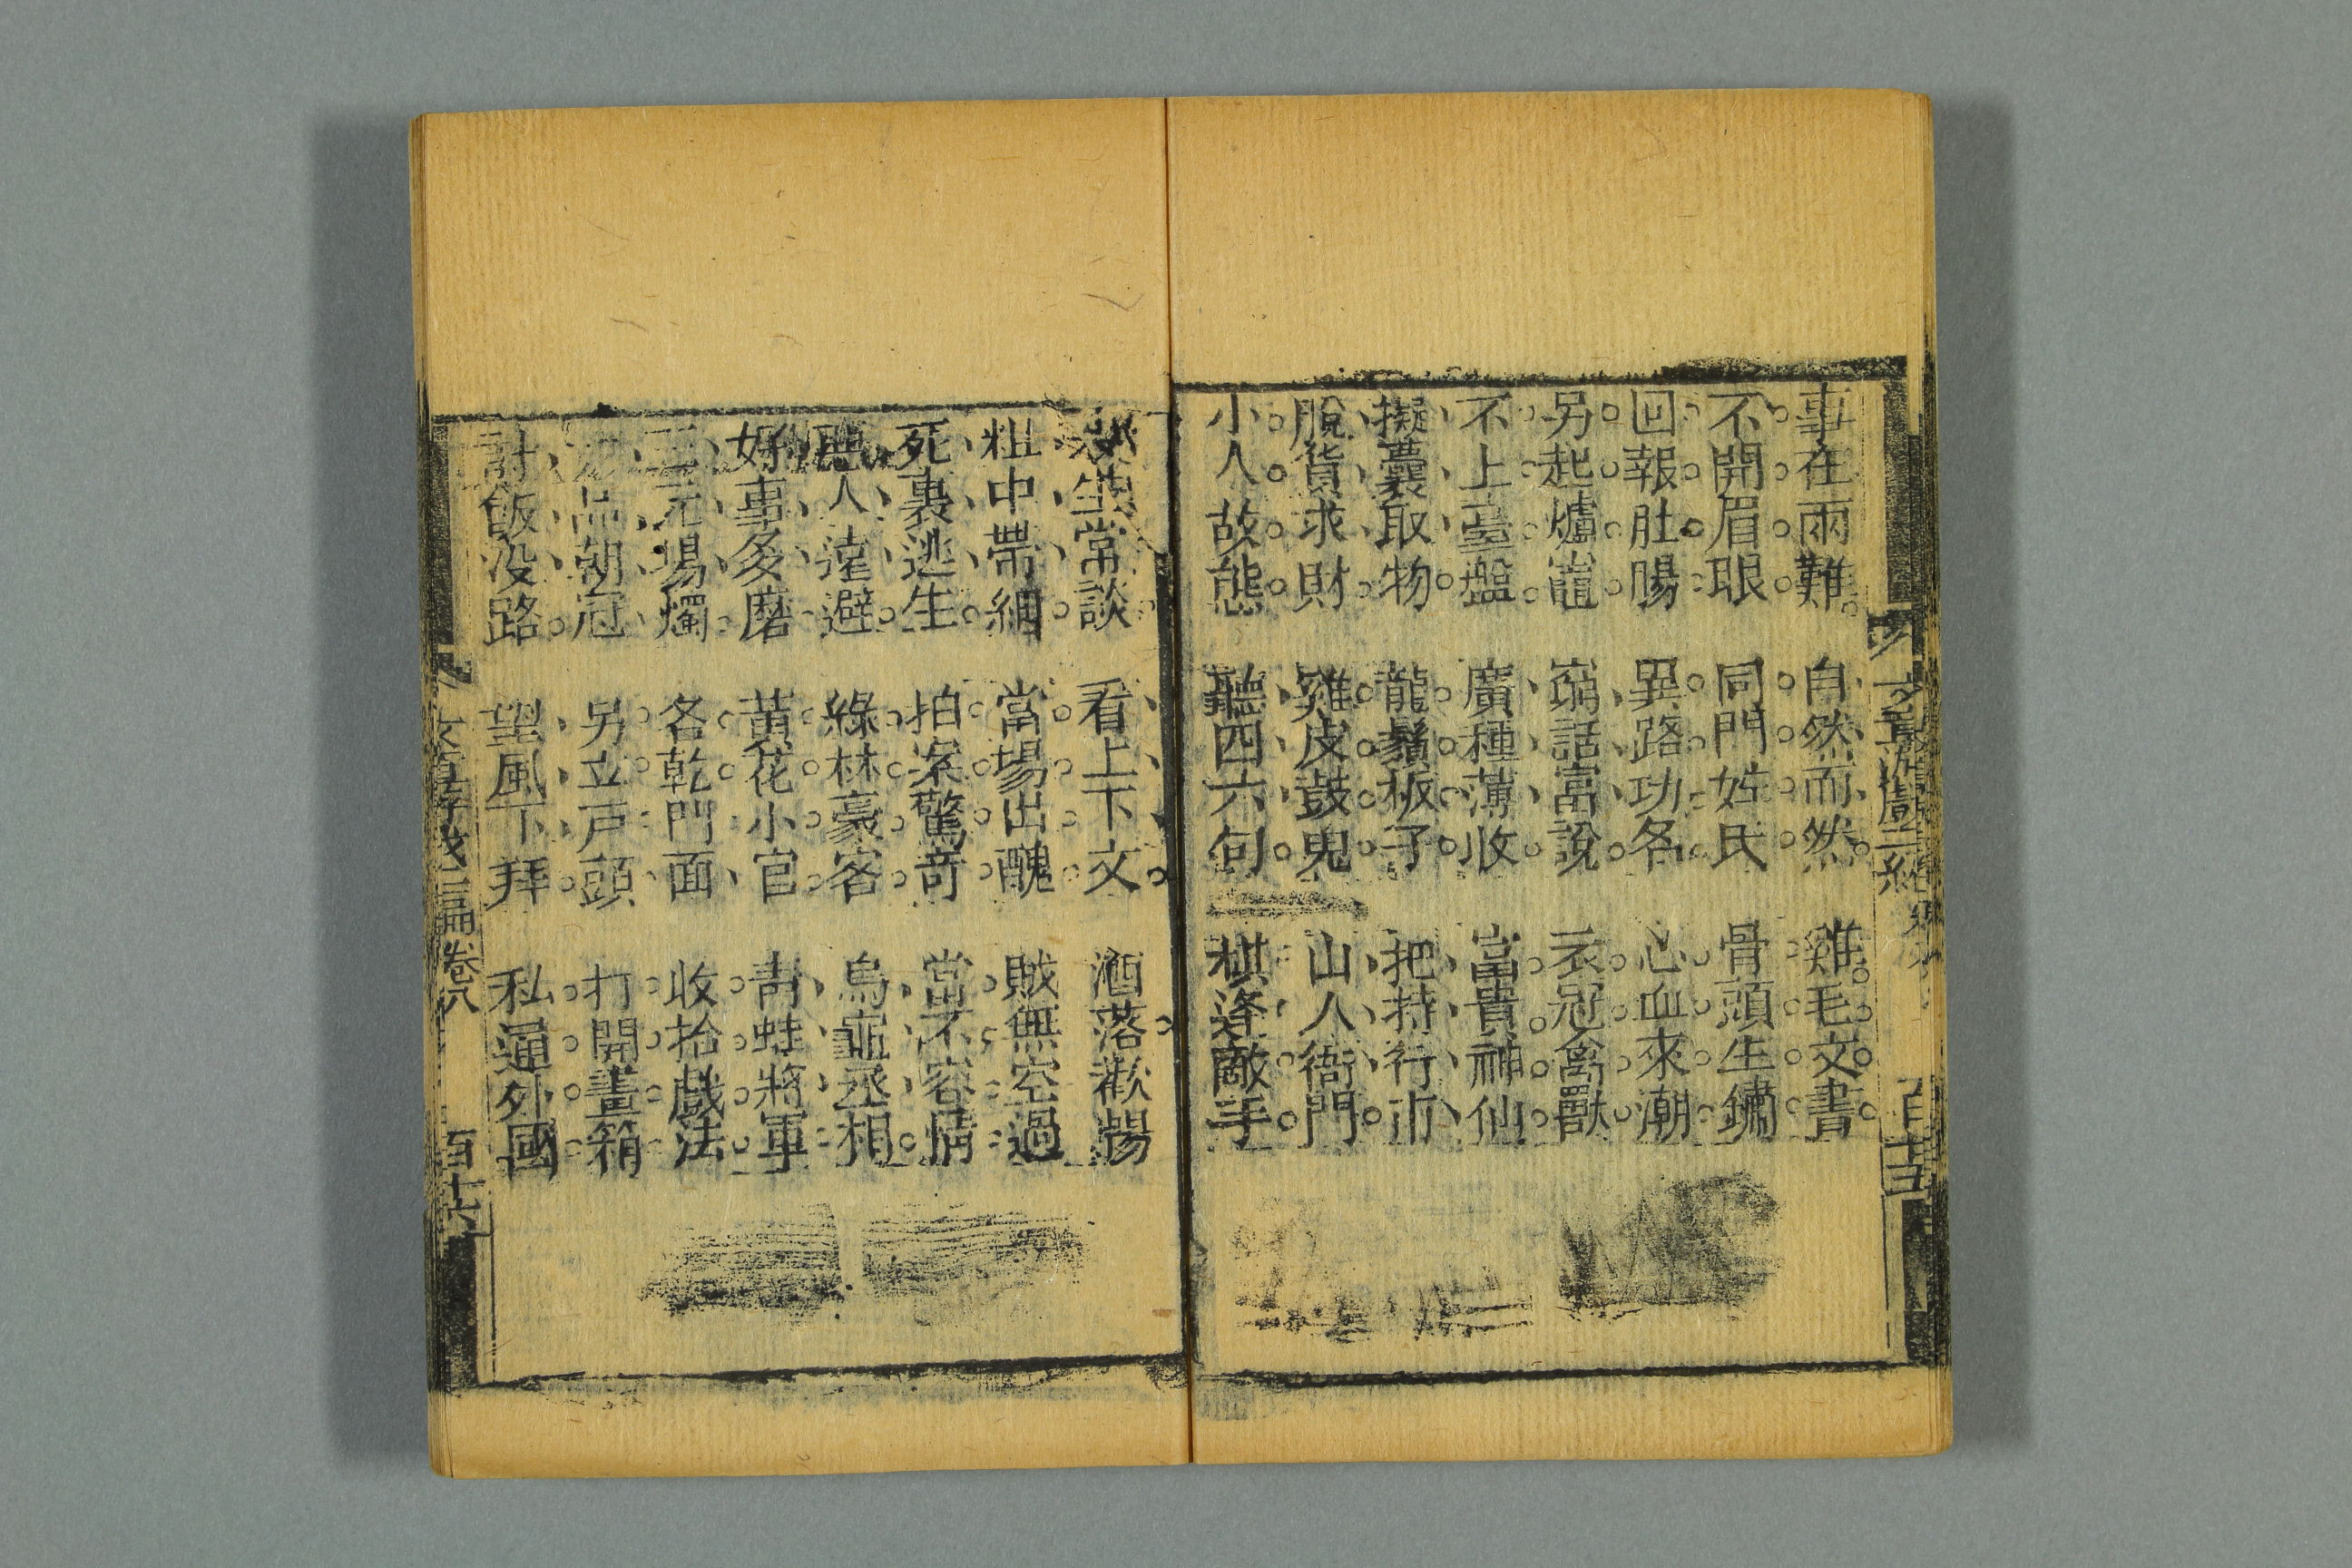 事在兩難 自然而然 雞毛文書
不開眉眼 同門姓氏 骨頭生鏽
回報肚腸 異路功名 心血來潮
另起爐竈 窮話富說 衣冠禽獸
不上臺盤 廣種薄收 富貴神仙
擬囊取物 龍鬚板子 把持行市
脫貨求財 雞皮鼓兒 山人衙門
小人故態 聽四六句 棋逢敵手
生常談 看上下文 酒落歡腸
粗中帶細 當場出醜 賊無空過
死裏逃生 拍案驚奇 當不容情
人遠避 綠林豪客 烏龜丞相
好事多磨 黃花小官 青蛙將軍
三元場燭 各乾門面 收拾戲法
品朝冠 另立戶頭 打開畫箱
討飯没路 望風下拜 私通外國
文章游戲三編 卷八 百十六